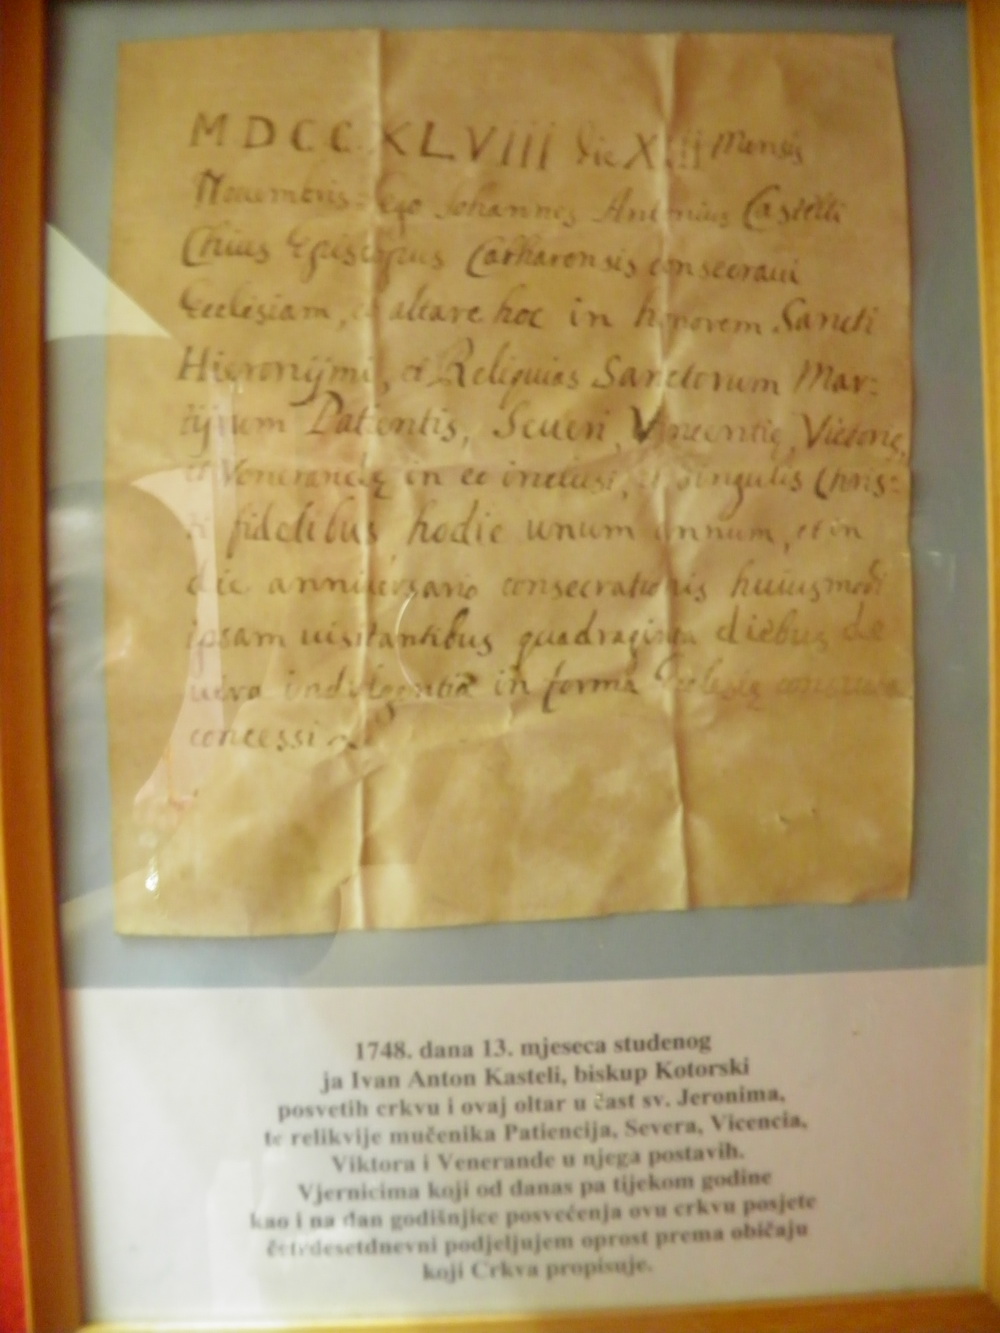 MDCCXLVIII die XIII Mensis
Nouembris Ego Iohannes Antonius Castelli
Chius Episcopus Catharensis consecraui
Ecclesiam, et altare hoc in honorem Sancti
Hieronÿmi, et Reliquias Sanctorum Mar:
tÿrum Patientis, Seueri, Vincentię, Victorię,
et Venerandę in eo inclusi, et singulis Chris:
ti fidelibus hodie unum annum, et in
die anniuersario consecrationis huiusmodi
ipsam uisitantibus quadraginta diebus de
uera indulgentia in forma Ecclesię consueta
concessi
1748. dana 13. mjeseca studenog
ja Ivan Anton Kasteli, biskup Kotorski
posvetih crkvu i ovaj oltar u čast sv. Jeronima,
te relikvije mučenika Patiencija, Severa, Vicencia,
Viktora i Venerande u njega postavih.
Vjernicima koji od danas pa tijekom godine
kao i na dan godišnjice posvećenja ovu crkvu posjete
četrdesetdnevni podjeljujem oprost prema običaju
koji Crkva propisuje.